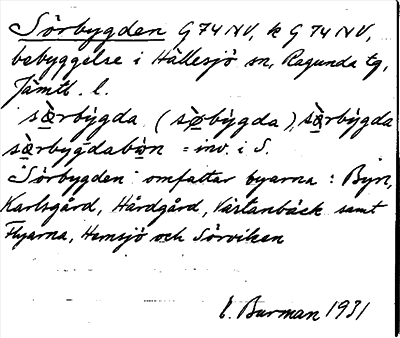 Sörbygden G 74 NV, k G 74 NV,
bebyggelse i Hällesjö sn, Ragunda tg,
Jämtl. l.
sœ̀rbýgda (sø̀býgda), sœ̀rbýgda
sœ̀rbygdabon = inv. i S.
"Sörbygden" omfattar byarna: Byn,
Karlsgård, Hårdgård, Västanbäck samt
Flyarna, Hemsjö och Sörviken
E. Burman 1931